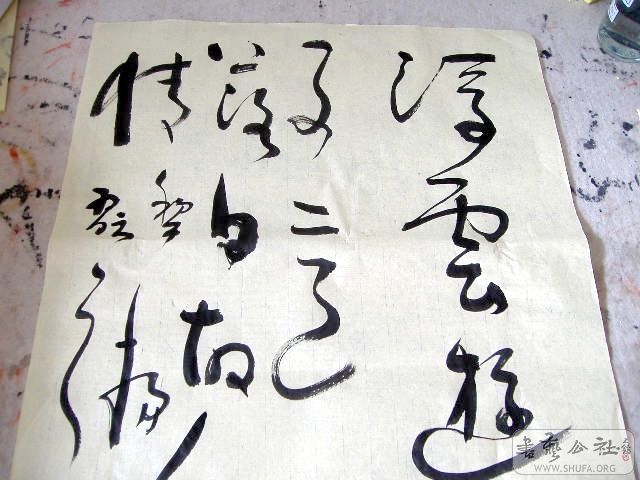 浮雲遊
子意
落日故人
情
書藝公社
WWW.SHUFA.ORG